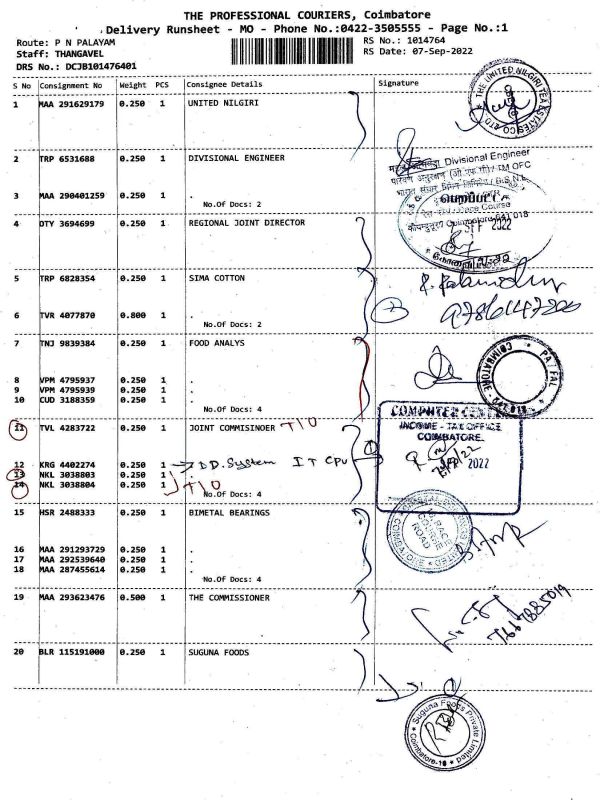 THE PROFESSIONAL COURIERS, Coimbatore
Delivery Runsheet - MO - Phone No.:0422-3505555 - Page No.:1
Route: P N PALAYAM
RS No.: 1014764
Staff: THANGAVEL
RS Date: 07-Sep-2022
DRS No.: DCJB101476401
S No Consignment No Weight PCS Consignee Details Signature
1 MAA 291629179 0.250 1 UNITED NILGIRI
THE UNITED NILGIRI TEA ESTATES CO. LTD.
2 TRP 6531688 0.250 1 DIVISIONAL ENGINEER
Divisional Engineer
3 MAA 290401259 0.250 1 .
No.Of Docs: 2
4 DTY 3694699 0.250 1 REGIONAL JOINT DIRECTOR
SEP 2022
5 TRP 6828354 0.250 1 SIMA COTTON
6 TVR 4077870 0.800 1 .
No.Of Docs: 2
7 TNJ 9839384 0.250 1 FOOD ANALYS
8 VPM 4795937 0.250 1 .
9 VPM 4795939 0.250 1 .
10 CUD 3188359 0.250 1 .
No.Of Docs: 4
11 TVL 4283722 0.250 1 JOINT COMMISINDER T/O
COMPUTER CENTRE
INCOME - TAX OFFICE
COIMBATORE.
2022
12 KRG 4402274 0.250 1 → DD. System IT CPU
13 NKL 3038803 0.250 1 .
14 NKL 3038804 0.250 1 T/O
No.Of Docs: 4
15 HSR 2488333 0.250 1 BIMETAL BEARINGS
RACE COURSE ROAD
16 MAA 291293729 0.250 1 .
17 MAA 292539640 0.250 1 .
18 MAA 287455614 0.250 1 .
No.Of Docs: 4
19 MAA 293623476 0.500 1 THE COMMISSIONER
7667885019
20 BLR 115191000 0.250 1 SUGUNA FOODS
Suguna Foods Private Limited
Coimbatore-18